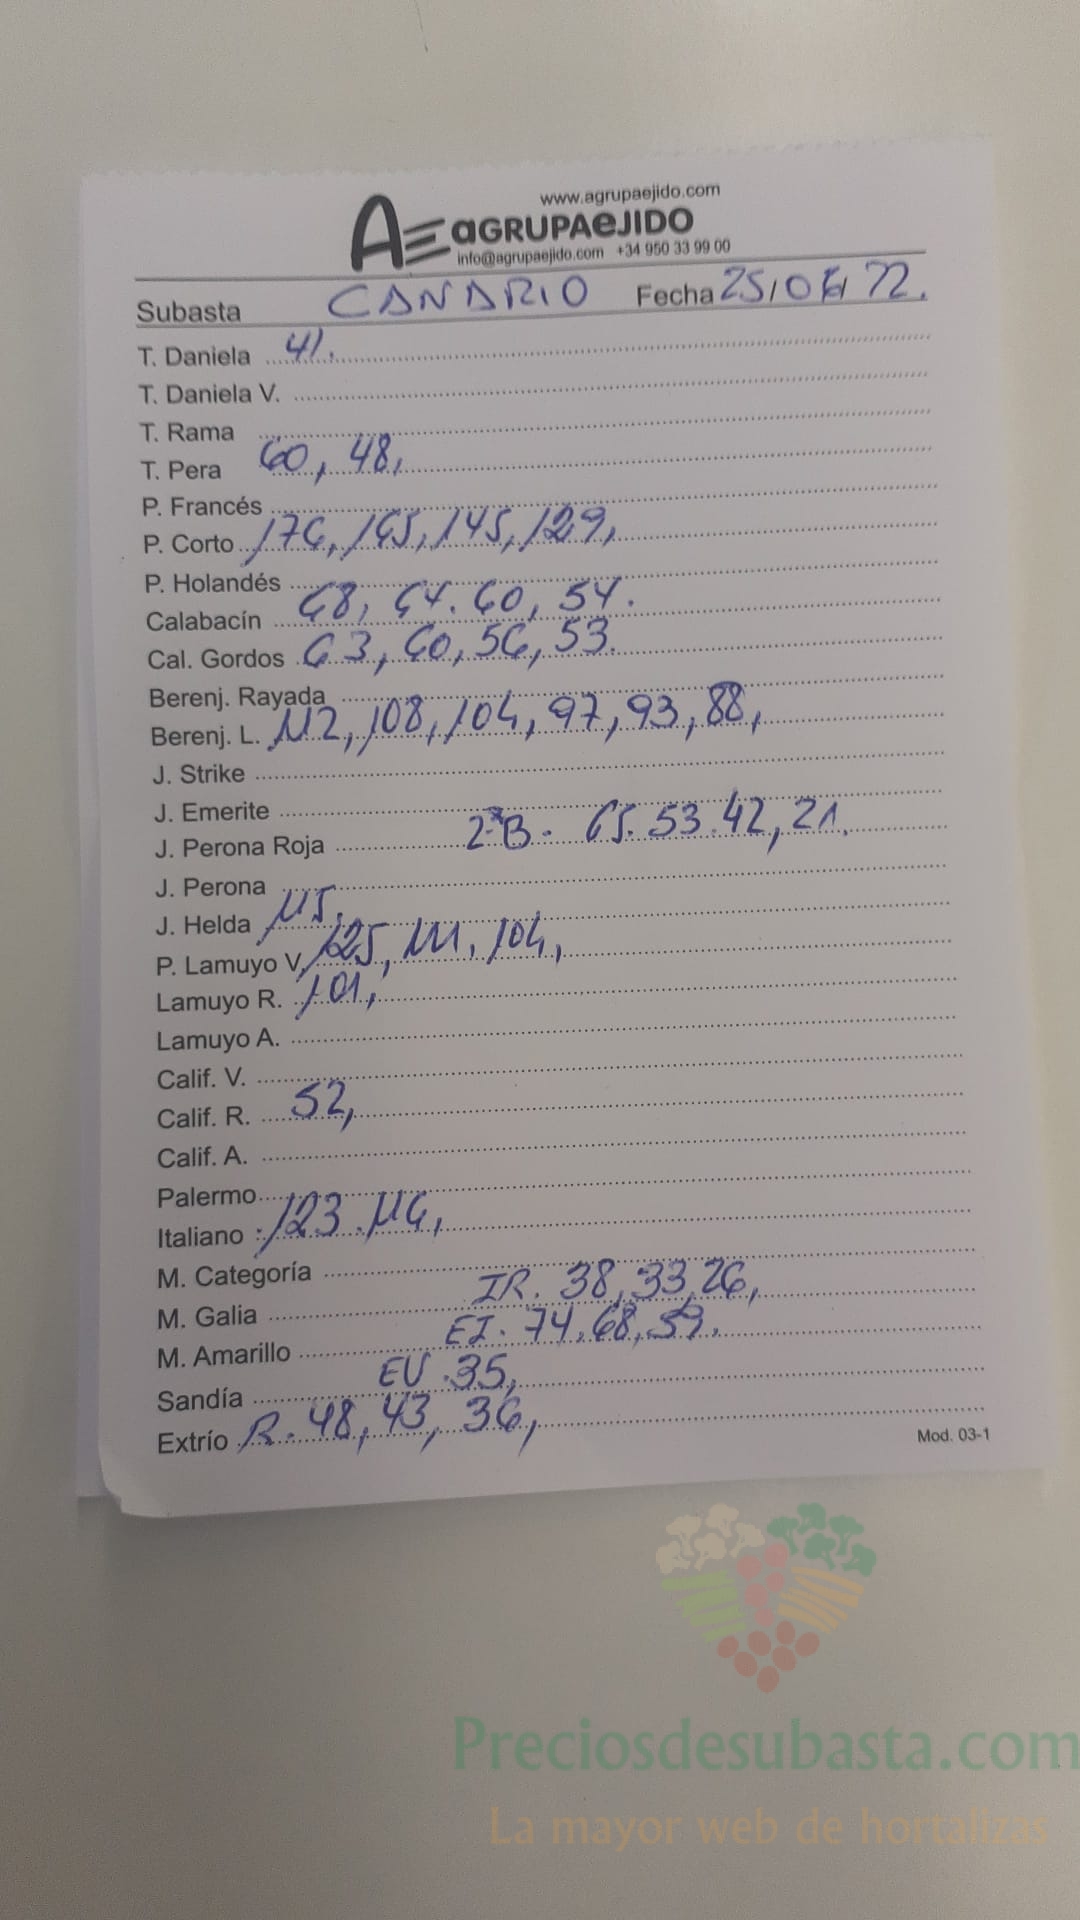 www.agrupaejido.com
AGRUPAEJIDO
info@agrupaejido.com +34 950 33 99 00
Subasta CANARIO Fecha 25/06/22.
T. Daniela 41.
T. Daniela V.
T. Rama
T. Pera 60, 48,
P. Francés
P. Corto 176, 165, 145, 129,
P. Holandés
Calabacín 68, 64. 60, 54.
Cal. Gordos 63, 60, 56, 53.
Berenj. Rayada
Berenj. L. 112, 108, 104, 97, 93, 88,
J. Strike
J. Emerite
J. Perona Roja 2ªB. 65. 53. 42, 21.
J. Perona
J. Helda 115.
P. Lamuyo V. 125, 111, 104,
Lamuyo R. 101,
Lamuyo A.
Calif. V.
Calif. R. 52,
Calif. A.
Palermo
Italiano 123. 116,
M. Categoría
M. Galia IR. 38, 33, 26,
M. Amarillo EI. 74, 68, 59.
Sandía EV. 35,
Extrío R. 48, 43, 36,
Mod. 03-1
Preciosdesubasta.com
La mayor web de hortalizas